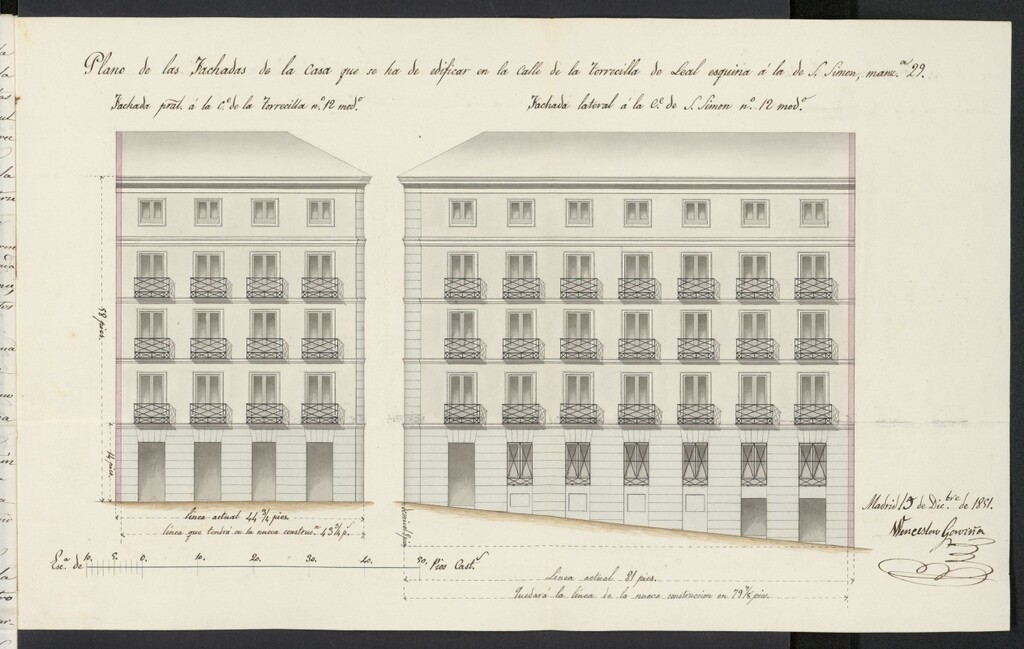 Plano de las Fachadas de la Casa que se ha de edificar en la Calle de la Torrecilla de Leal esquina á la de S. Simon, manz.ª 29.
Fachada pral. á la C.e de la Torrecilla n.º 12 mod.º
Fachada lateral á la C.e de S. Simon n.º 12 mod.º
58 pies.
14 pies.
linea actual 44 3/4 pies.
linea que tendrá en la nueva construc.n 43 3/4 p.s
Esc.ª de 10. 5. 0. 10. 20. 30. 40. 50. Pies Cast.s
Linea actual 81 pies.
Quedará la linea de la nueva construccion en 79 7/8 pies.
Madrid 15 de Dic.bre de 1851.
Wenceslao Gaviña